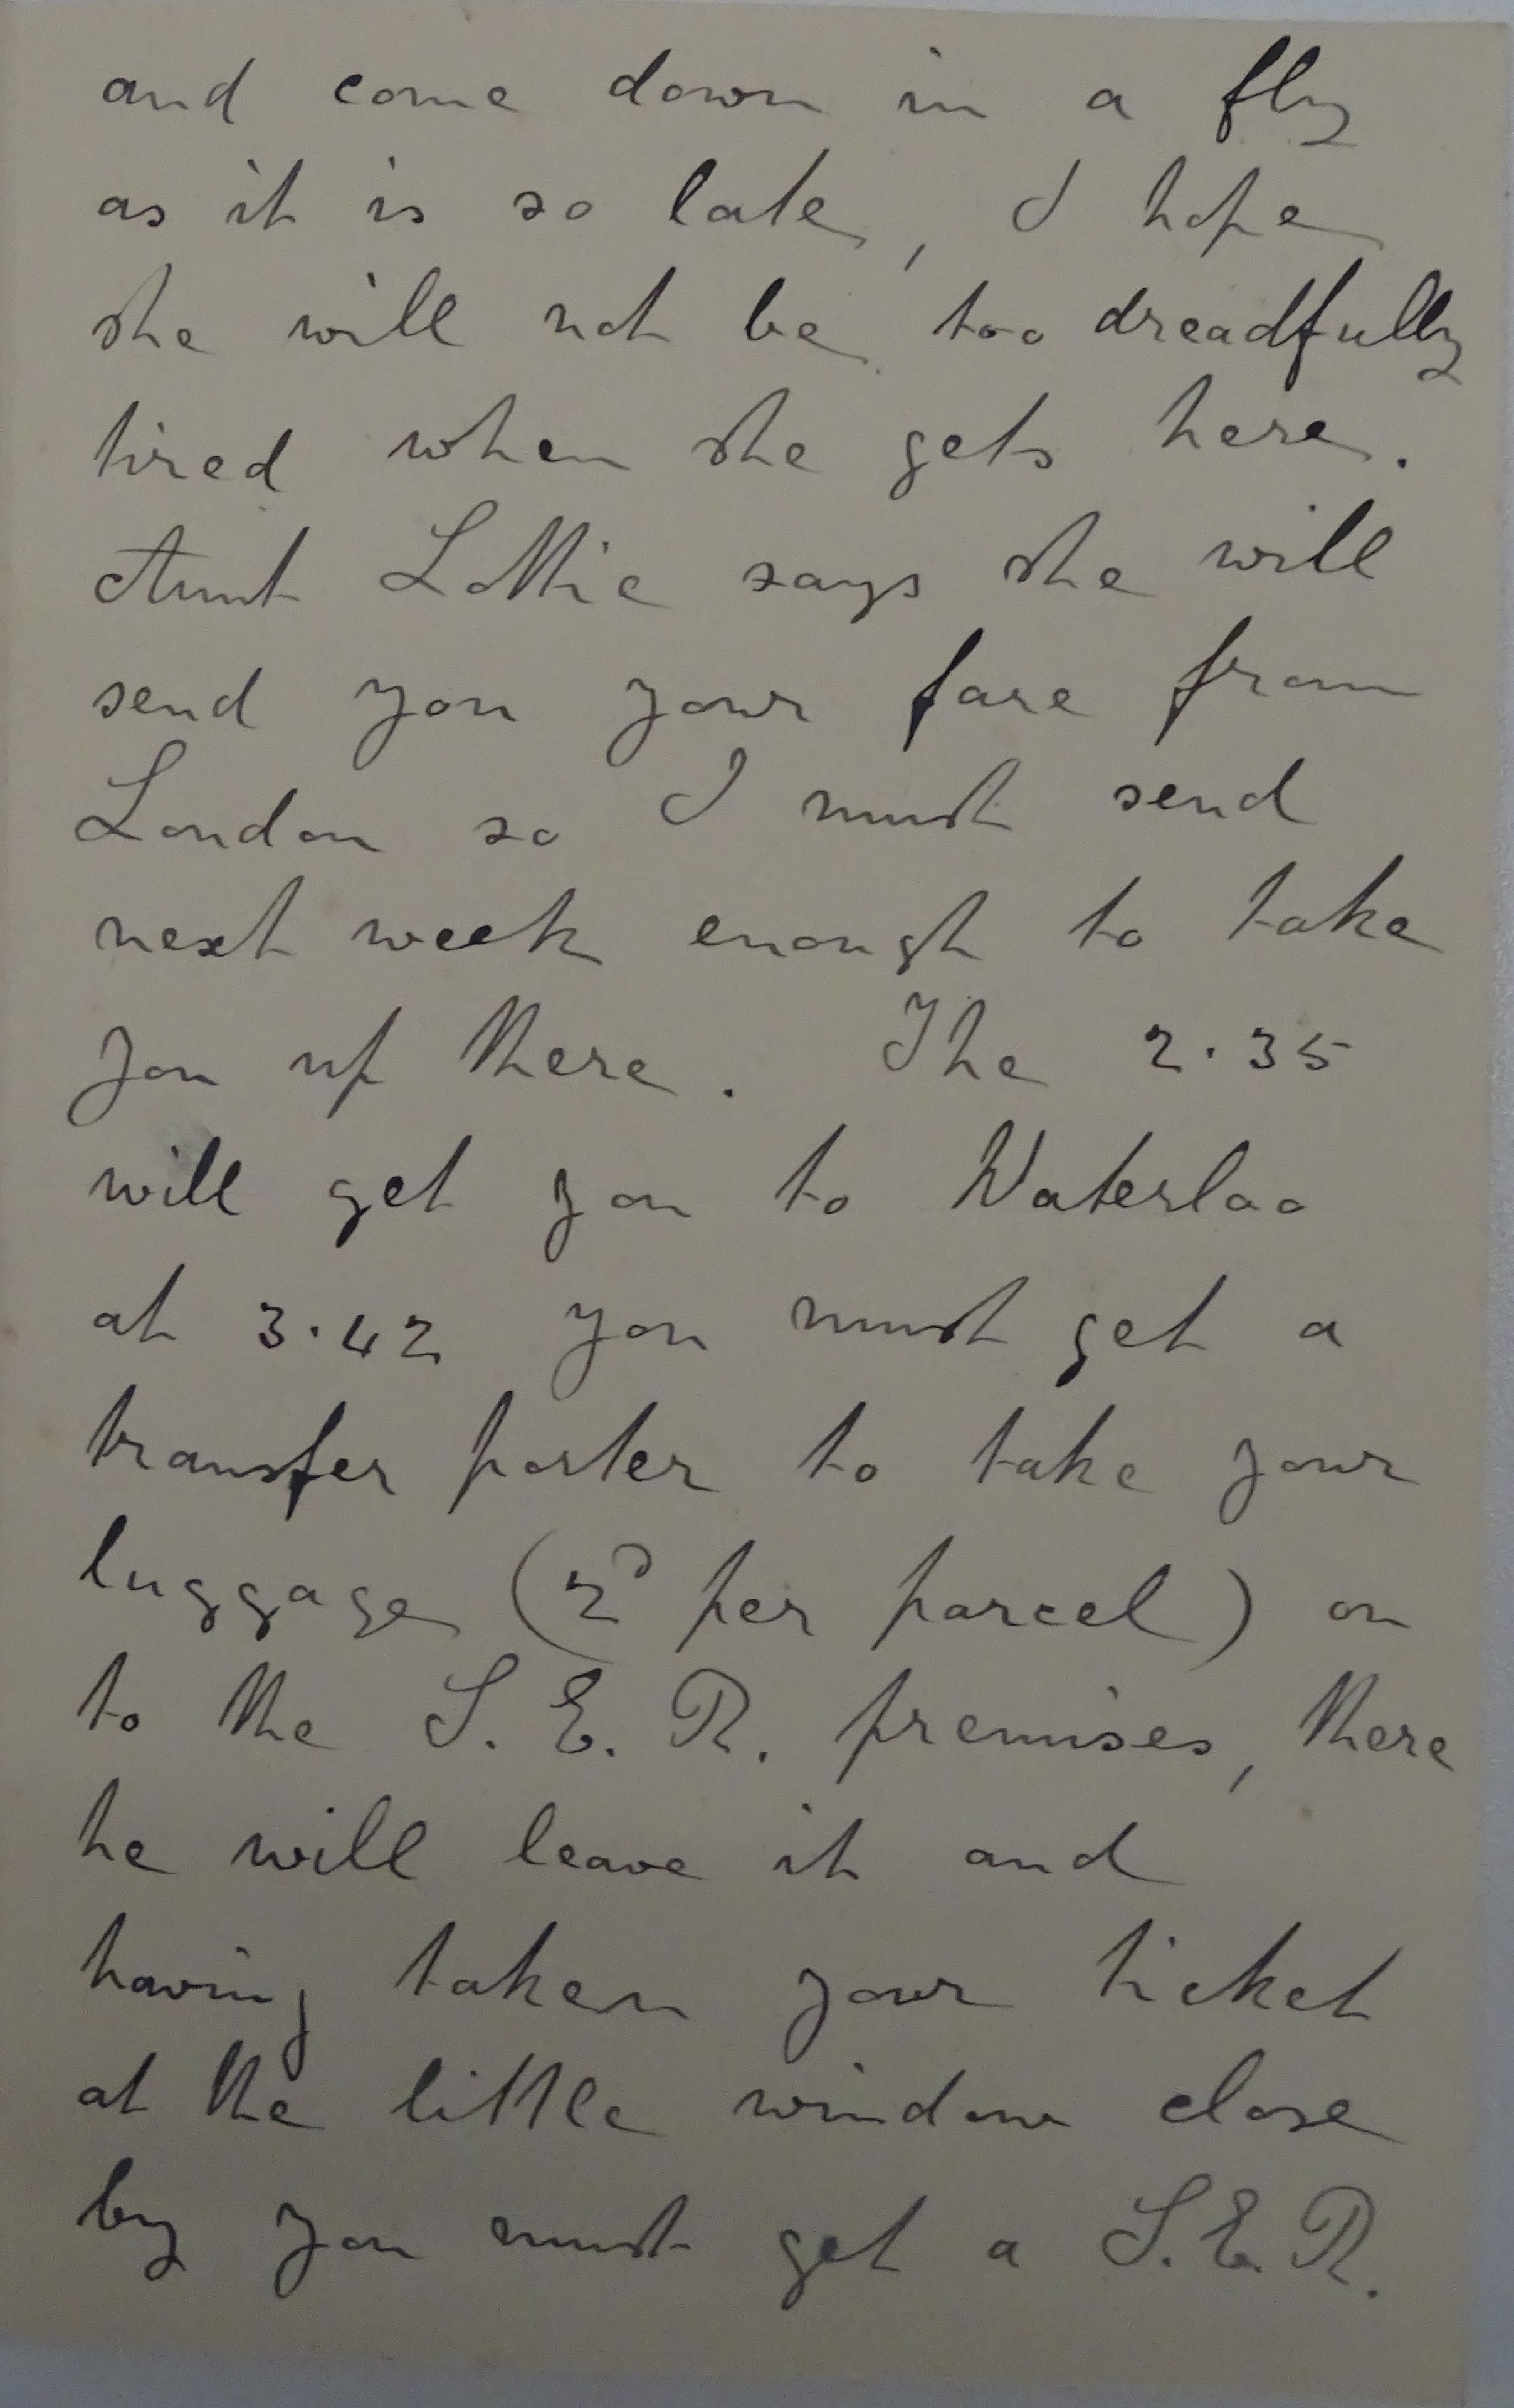 and come down in a fly
as it is so late, I hope
she will not be too dreadfully
tired when she gets here.
Aunt Lottie says she will
send you your fare from
London so I must send
next week enough to take
you up there. The 2.35
will get you to Waterloo
at 3.42 you must get a
transfer porter to take your
luggage (2ᵈ per parcel) on
to the S. E. R. premises, there
he will leave it and
having taken your ticket
at the little window close
by you must get a S.E.R.